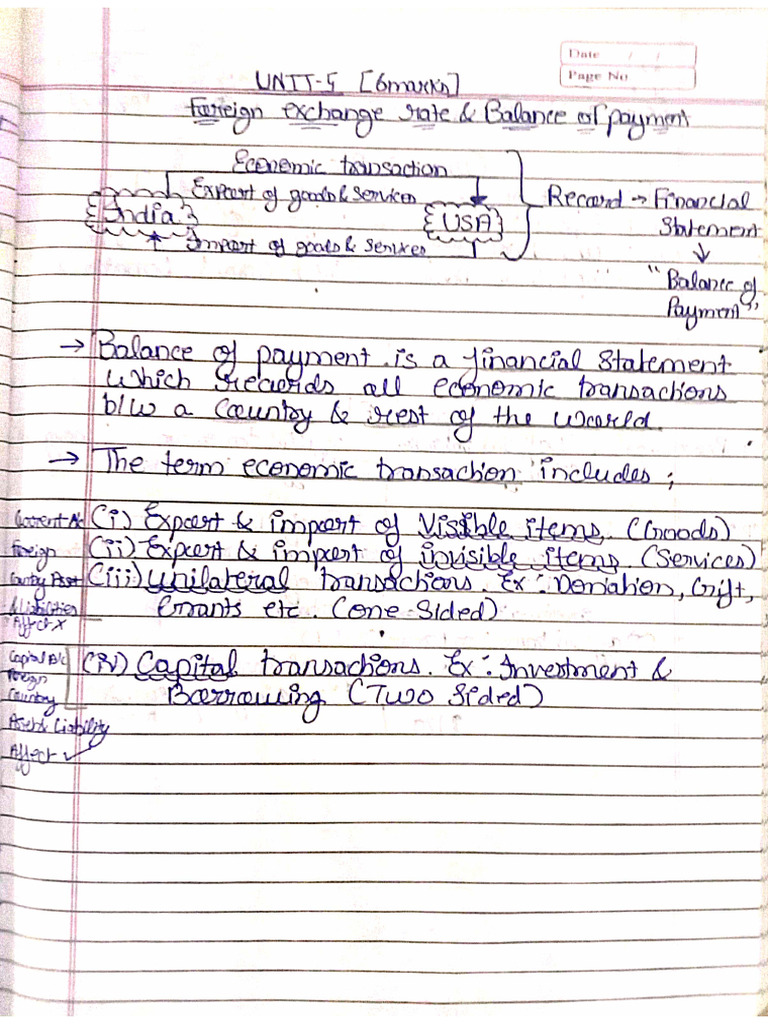 Date / /
Page No
UNIT-5 [6marks]
Foreign exchange rate & Balance of payment
Economic transaction
Export of goods & services
India
USA
Import of goods & services
Record → Financial
Statement
↓
"Balance of
Payment"
→ Balance of payment is a financial statement
which records all economic transactions
b/w a country & rest of the world.
→ The term economic transaction includes;
Current A/c (i) Export & import of Visible items. (Goods)
Foreign (ii) Export & import of invisible items. (Services)
(iii) unilateral transactions. Ex: Donation, Gift,
& Liabilities Grants etc. (one sided)
Affect X
Capital A/c (iv) Capital transactions. Ex: Investment &
foreign
Country Borrowing (Two sided)
Asset & Liability
Affect ✓